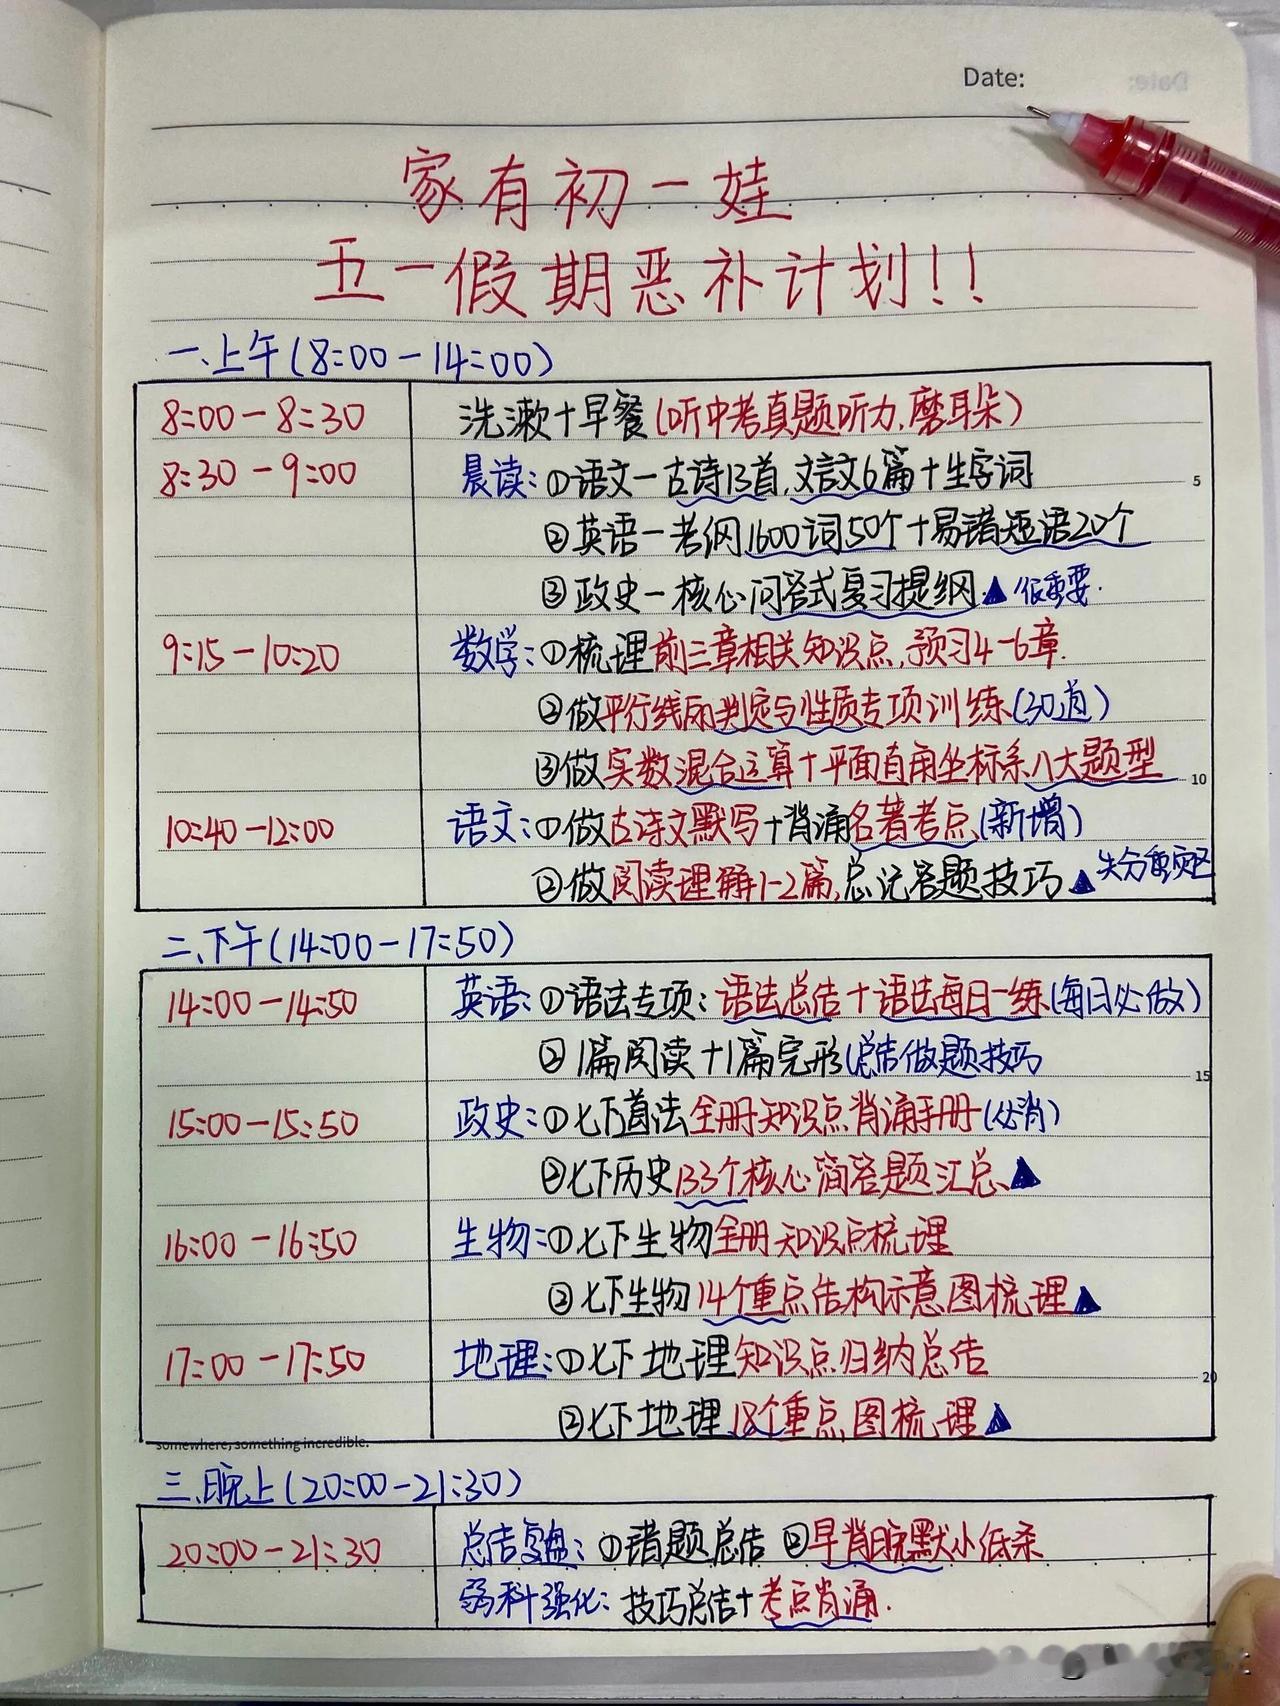 Date:
家有初一娃
五一假期恶补计划!!
一.上午(8:00-14:00)
8:00-8:30 洗漱+早餐(听中考真题听力,磨耳朵)
8:30-9:00 晨读:①语文-古诗13首,文言文6篇+生字词
5
②英语-考纲1600词50个+易错短语20个
③政史-核心问答式复习提纲▲很重要.
9:15-10:20 数学:①梳理前三章相关知识点,预习4-6章.
②做平行线的判定与性质专项训练(30道)
③做实数混合运算+平面直角坐标系八大题型
10
10:40-12:00 语文:①做古诗文默写+背诵名著考点(新增)
②做阅读理解1-2篇,总记答题技巧▲失分重灾区
二.下午(14:00-17:50)
14:00-14:50 英语:①语法专项:语法总结+语法每日一练(每日必做)
②1篇阅读+1篇完形(总结做题技巧
15
15:00-15:50 政史:①七下道法全册知识点背诵手册(必背)
②七下历史133个核心简答题汇总▲
16:00-16:50 生物:①七下生物全册知识点梳理
②七下生物14个重点结构示意图梳理▲
17:00-17:50 地理:①七下地理知识点归纳总结
20
②七下地理18个重点图梳理▲
somewhere, something incredible.
三.晚上(20:00-21:30)
20:00-21:30 总结复盘:①错题总结 ②早背晚默小纸条
弱科强化:技巧总结+考点背诵.